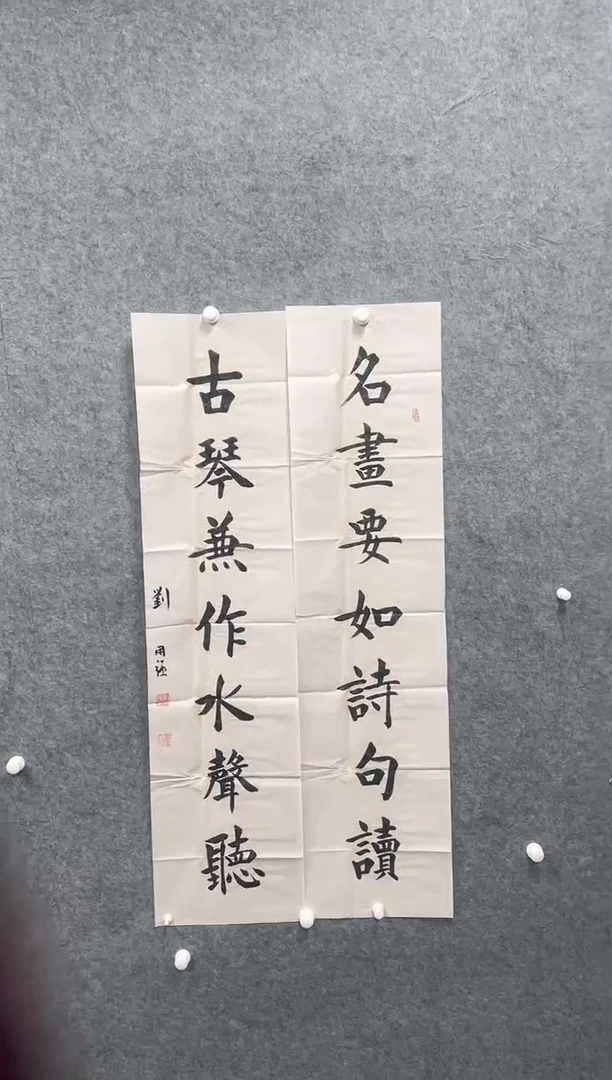 名畫要如詩句讀
古琴兼作水聲聽
劉